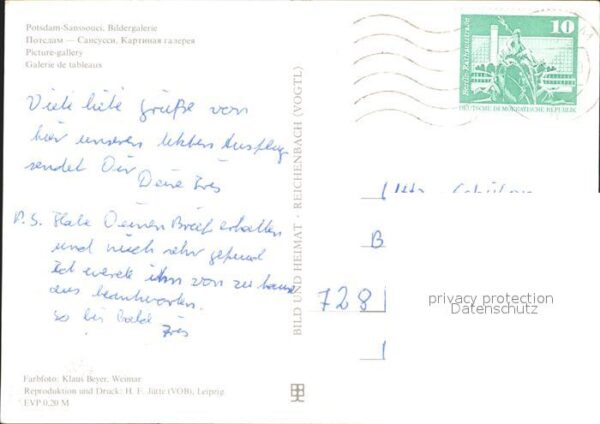 Potsdam-Sanssouci, Bildergalerie
Потсдам — Сансуси, Картиная галерея
Picture-gallery
Galerie de tableaux
Viele liebe Grüße von
hier unserem letzten Ausflug
sendet Dir
Deine
P.S. Habe Deinen Brief erhalten
und mich sehr gefreut
Ich werde ihn von zu Hause
aus beantworten.
so bis bald
Farbfoto: Klaus Beyer, Weimar
Reproduktion und Druck: H. F. Jütte (VOB), Leipzig
EVP 0,20 M
BILD UND HEIMAT · REICHENBACH (VOGTL)
10
Berlin, Rathausstraße
DEUTSCHE DEMOKRATISCHE REPUBLIK
B
728
privacy protection
Datenschutz